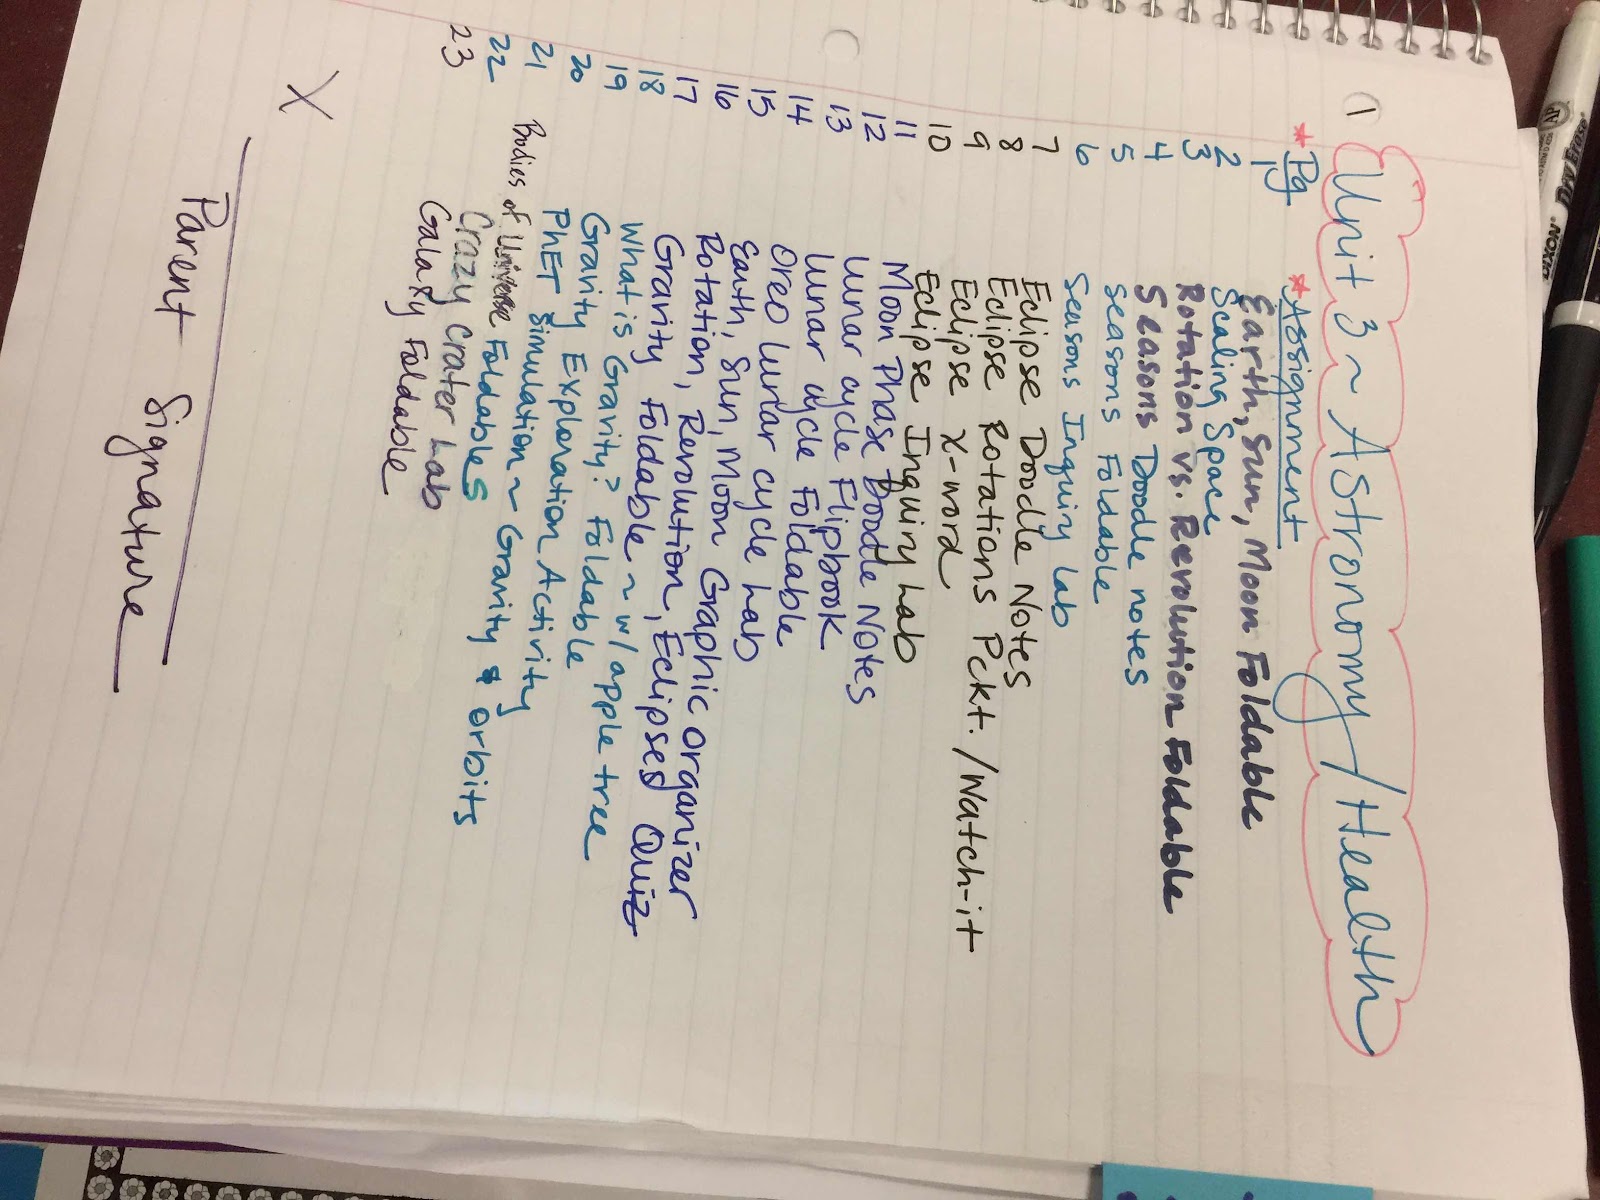 1 Unit 3 ~ Astronomy/Health
*Pg *Assignment
1 Earth, Sun, Moon Foldable
2 Scaling Space
3 Rotation vs. Revolution Foldable
4 Seasons Doodle notes
5 Seasons Foldable
6 Seasons Inquiry Lab
7 Eclipse Doodle Notes
8 Eclipse Rotations Pckt./Watch-it
9 Eclipse X-word
10 Eclipse Inquiry Lab
11 Moon Phase Doodle Notes
12 Lunar cycle Flipbook
13 Lunar cycle Foldable
14 Oreo Lunar cycle Lab
15 Earth, Sun, Moon Graphic Organizer
16 Rotation, Revolution, Eclipses Quiz
17 Gravity Foldable ~ w/apple tree
18 What is Gravity? Foldable
19 Gravity Exploration Activity
20 PhET Simulation ~ Gravity & orbits
21 Bodies of Universe Foldables
22 Crazy Crater Lab
23 Galaxy Foldable
X
Parent Signature
DIXON Dry Erase
AP